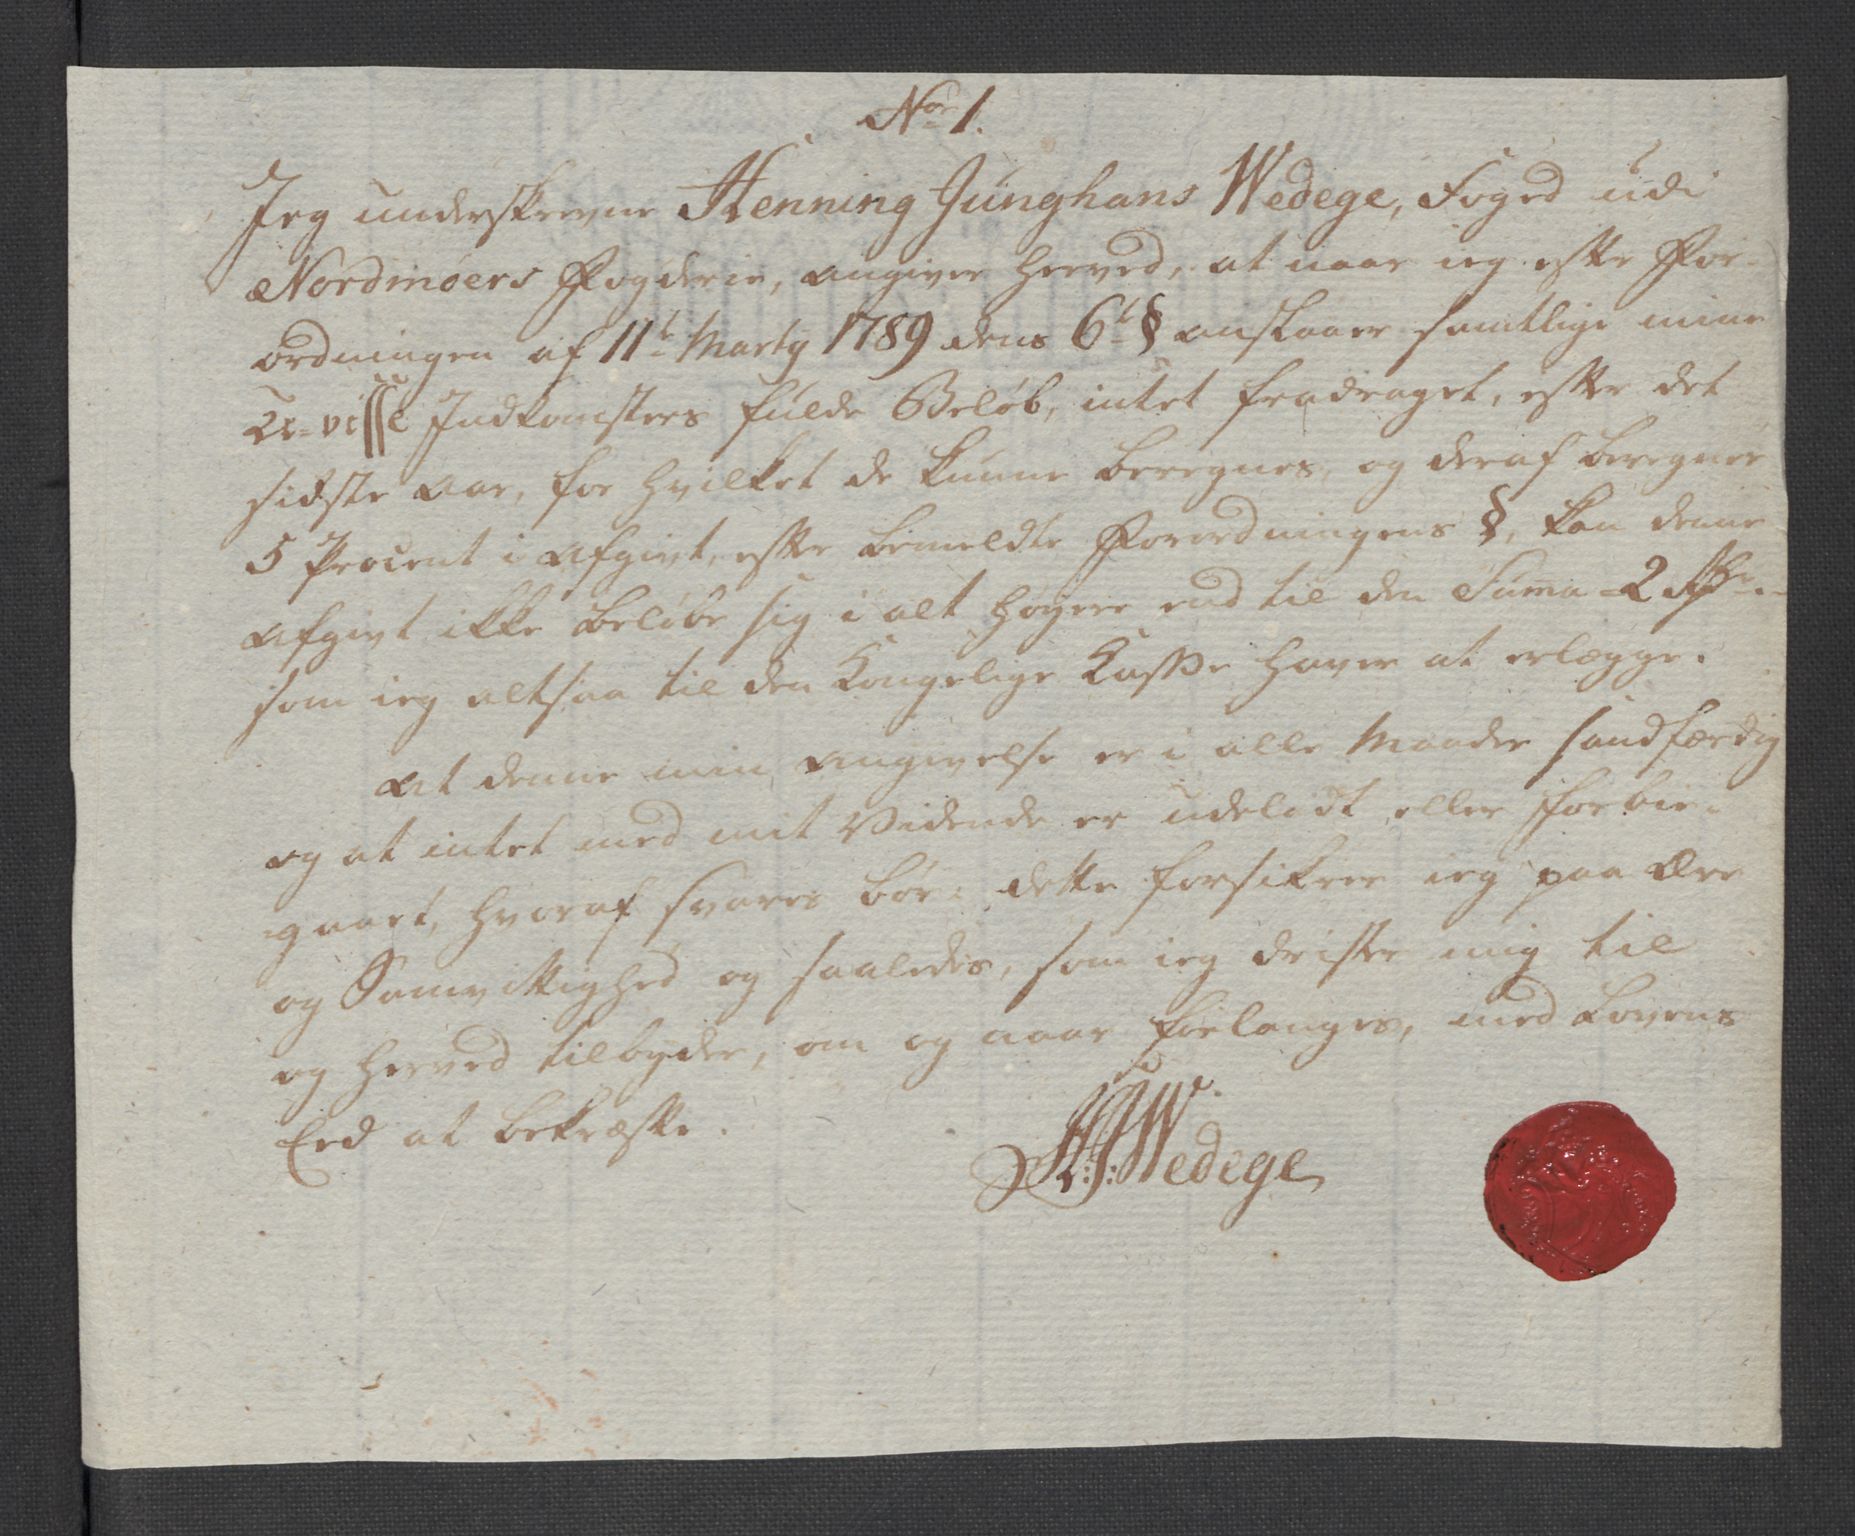 No 1.
Jeg underskrevne Henning Junghans Wedege, Foged udi
Nordmøers Fogderie, angiver herved, at naar ieg efter For-
ordningen af 11te Marty 1789 dens 6te § anslaaer samtlige mine
U-visse Indkomsters fulde Beløb, intet fradraget, efter det
sidste Aar, for hvilket de kunne beregnes, og deraf beregner
5 Procent i Afgivt, efter bemeldte Forordningens §, kan denne
Afgivt ikke beløbe sig i alt høyere end til den Suma 2 Rdr
som ieg altsaa til den Kongelige Casse haver at erlægge.
At denne min Angivelse er i alle Maader sandfærdig
og at intet med mit Vidende er udeladt eller forbie-
gaaet, hvoraf svares bør: dette forsikrer ieg paa Ære
og Samvittighed og saaledes, som ieg drister mig til
og herved tilbyder, om og naar forlanges, med Lovens
Eed at bekræfte.
H:J:Wedege